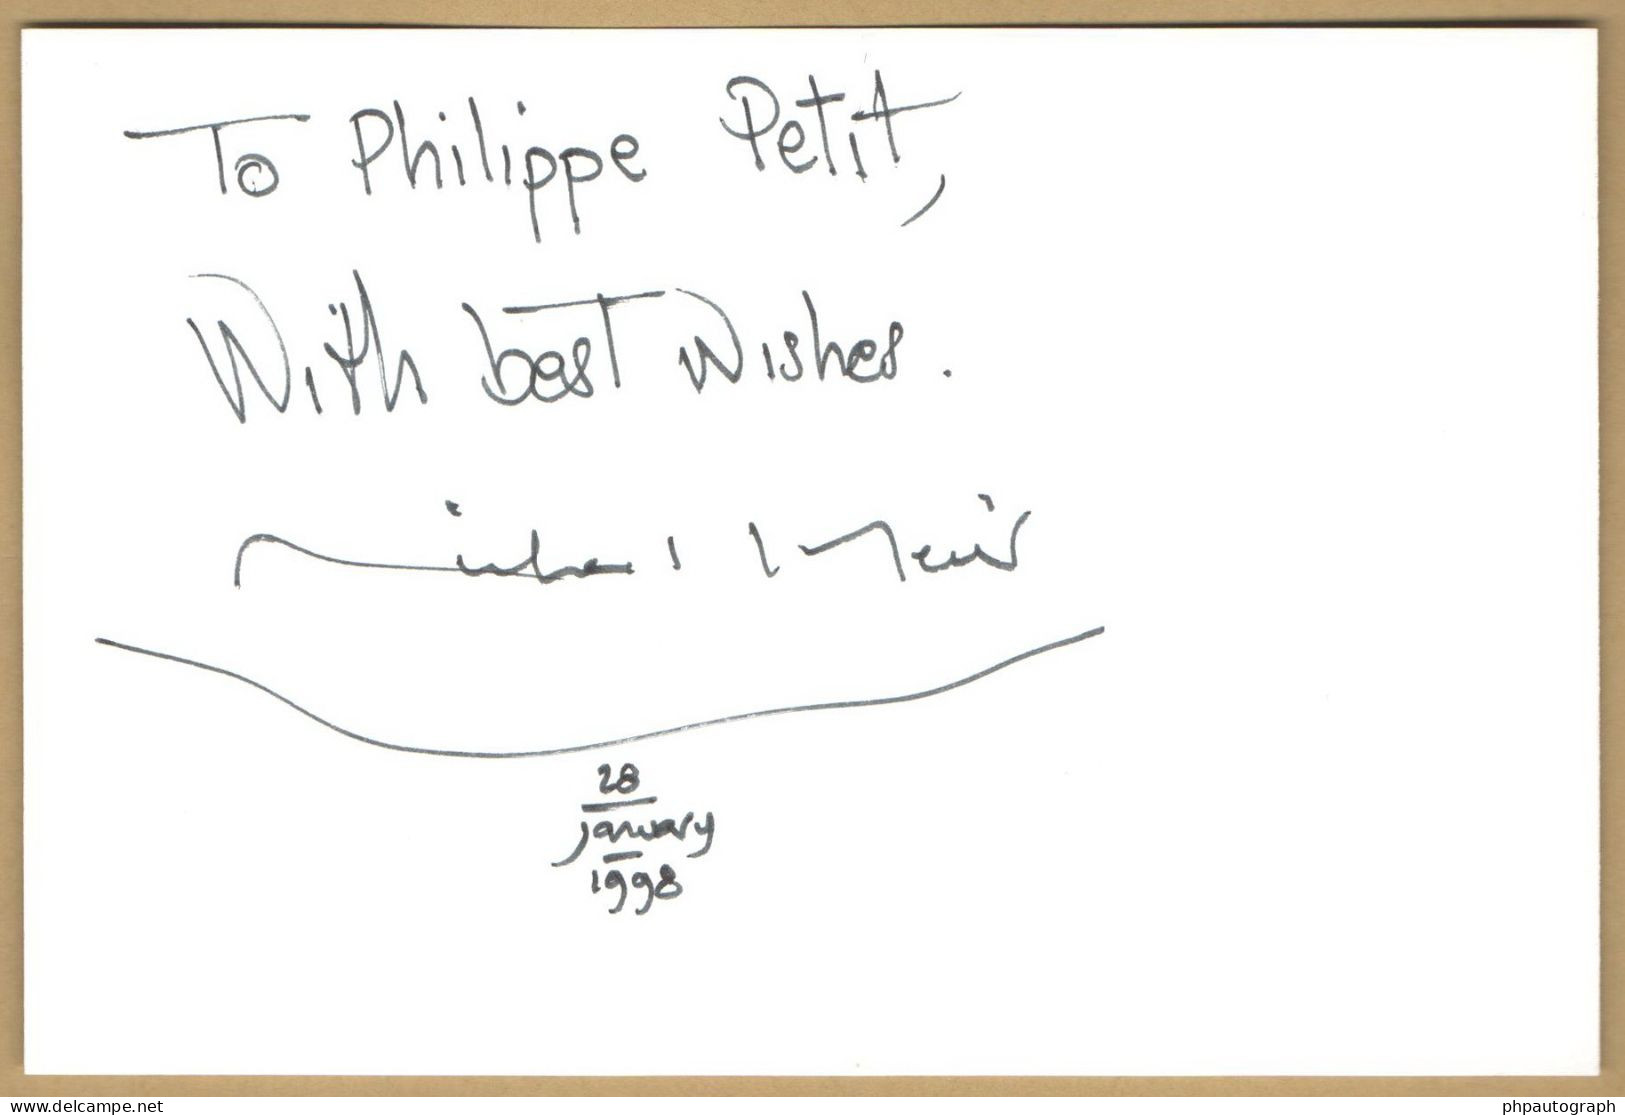 To Philippe Petit,
With best wishes.
Richard Meier
28
january
1998
delcampe.net
phpautograph